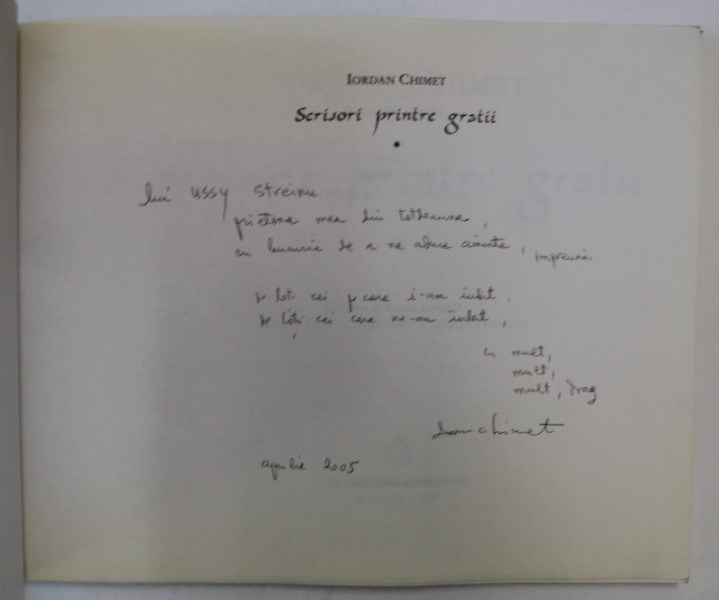 IORDAN CHIMET
Scrisori printre gratii
lui Ussy Streinu
prietena mea din totdeauna,
cu bucuria de a ne aduce aminte, împreună
de toți cei pe care i-am iubit,
de toți cei care ne-au iubit,
cu mult,
mult,
mult, drag
chimet
aprilie 2005